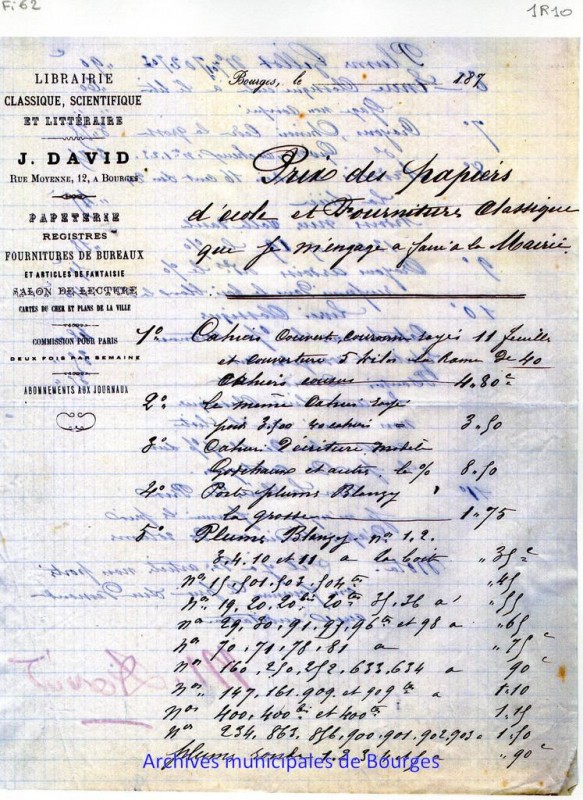 Fi 62
1R10
LIBRAIRIE
CLASSIQUE, SCIENTIFIQUE
ET LITTÉRAIRE
J. DAVID
RUE MOYENNE, 12, A BOURGES
PAPETERIE
REGISTRES
FOURNITURES DE BUREAUX
ET ARTICLES DE FANTAISIE
SALON DE LECTURE
CARTES DU CHER ET PLANS DE LA VILLE
COMMISSION POUR PARIS
DEUX FOIS PAR SEMAINE
ABONNEMENTS AUX JOURNAUX
Bourges, le 187
Prix des papiers
d'école et Fourniture Classique
que je m'engage a a la Mairie
1º Cahiers rayés 11 feuilles
et couverture 5 kilos la Rame de 40
Cahiers 4.80c
2º le même Cahier rayé
pour 3.500 40 cahiers = 3.50
3º Cahier d'écriture
Godchaux et autres le % 8.50
4º Porte plume Blanzy
la grosse 1.75
5º Plume Blanzy nº 1.2.
3.4.10 et 11 a la boit " 35c
Nos 15.501.503.504 " 45
Nos 19.20.20bis 20ter 35.36 a " 55
Nos 29.30.91.93.96 et 98 a " 65
Nos 70.71.78.81 a " 75c
Nos 160.250.252.633.634 a 90c
Nos 147.161.909 et 909 a 1.10
Nos 400.400bis et 400ter 1.15
Nos 234.863.856.900.901.902.903 a 1.50
plume 1.2.3.4 " 90c
Archives municipales de Bourges